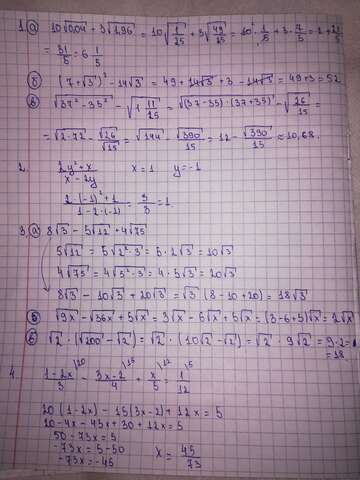 1. а) 10√0,04 + 3√1,96 = 10√(1/25) + 3√(49/25) = 10 · 1/5 + 3 · 7/5 = 2 + 21/5
= 31/5 = 6 1/5
б) (7+√3)² − 14√3 = 49 + 14√3 + 3 − 14√3 = 49+3 = 52
в) √(37² − 35²) − √(1 11/15) = √((37−35)·(37+35)) − √(26/15) =
= √(2·72) − √26/√15 = √144 − √390/15 = 12 − √390/15 ≈ 10,68.
2. (2y²+x)/(x−2y) x=1 y=−1
(2·(−1)²+1)/(1−2·(−1)) = 3/3 = 1
3. а) 8√3 − 5√12 + 4√75
5√12 = 5√(2²·3) = 5·2√3 = 10√3
4√75 = 4√(5²·3) = 4·5√3 = 20√3
8√3 − 10√3 + 20√3 = √3 (8−10+20) = 18√3
б) √9x − √36x + 5√x = 3√x − 6√x + 5√x = (3−6+5)√x = 2√x
в) √2 · (√200 − √2) = √2 · (10√2 − √2) = √2 · 9√2 = 9·2 =
= 18
4. (1−2x)/3 \20 − (3x−2)/4 \15 + x/5 \12 = 1/12 \5
20(1−2x) − 15(3x−2) + 12x = 5
20−4x − 45x + 30 + 12x = 5
50 − 73x = 5
−73x = 5−50
−73x = −45 x = 45/73